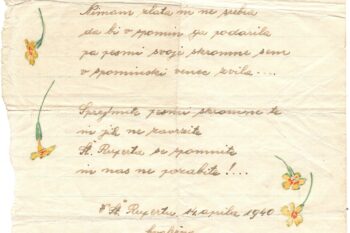 Nimam zlata in ne srebra
da bi v spomin ga podarila
pa pesmi svoje skromne sem
v spominski venec zvila....
Sprejmite pesmi skromne te
in jih ne zavrzite
Št. Ruperta se spomnite
in nas ne pozabite!...
V Št. Rupertu, 14. aprila 1940